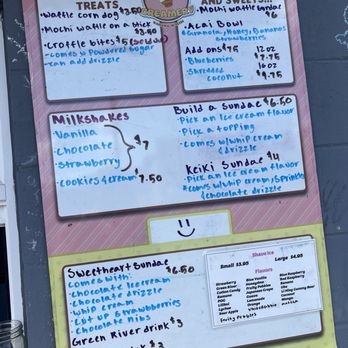 TREATS
CREAMERY
AND SWEETS...
• Waffle corn dog $3.50
• Mochi waffle on a stick
$3.50
• Croffle bites $5
• Comes w/ Powdered sugar
• can add drizzle
• Mochi waffle Sundae
$6
• Acai Bowl
• Granola, Honey, Bananas
Strawberries
Add ons $.75
12 oz
• Blueberries
$7.75
• Shredded
16 oz
coconut
$9.75
Milkshakes
• Vanilla
• Chocolate
• Strawberry
$7
• Cookies & cream $7.50
Build a Sundae $6.50
• Pick an Ice cream flavor
• Pick a topping
• Comes w/ whip cream
& drizzle
Keiki Sundae $4
• Pick an Ice cream flavor
• Comes w/ whip cream, Sprinkles
& chocolate drizzle
Sweetheart Sundae
$6.50
Comes with:
• Chocolate Icecream
• Chocolate drizzle
• Whip cream
• Cut up strawberries
• Chocolate mints
Green River drink $3
Shave Ice
Small $3.95
Large $4.95
Flavors
Strawberry
Green River
Cotton Candy
Banana
POG
Lilikoi
Lychee
Sour Apple
Blue Vanilla
Honeydew
Fruity Pebbles
Pineapple
Guava
Lemonade
Orange
Vanilla
Blue Raspberry
Red Raspberry
Grape
Lime
Li Hing
Coconut
Mango